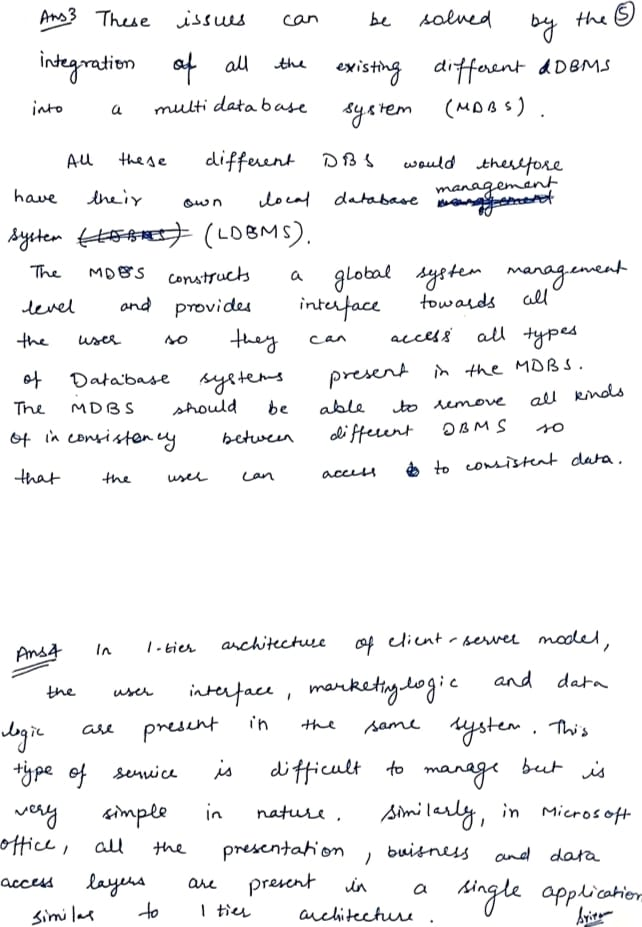 Ans3 These issues can be solved by the ⑤
integration of all the existing different DBMS
into a multi database system (MDBS).
All these different DBS would therefore
have their own local database management
system (LDBMS).
The MDBS constructs a global system management
level and provides interface towards all
the user so they can access all types
of Database systems present in the MDBS.
The MDBS should be able to remove all kinds
of in consistency between different DBMS so
that the user can access to consistent data.
Ans4 In 1-tier architecture of client-server model,
the user interface, marketing logic and data
logic are present in the same system. This
type of service is difficult to manage but is
very simple in nature. Similarly, in Microsoft
office, all the presentation, buisness and data
access layers are present in a single application
similar to 1 tier architecture.